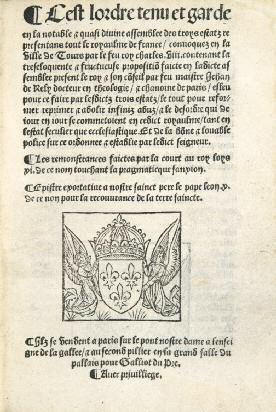 ¶ Cest lordre tenu et garde
en la notable & quasi divine assemblee des troys estatz re
presentans tout le royaulme de france / convoquez en la
ville de Tours par le feu roy charles. viii. contenant la
treseloquente & fructueuse propositiõ faicte en ladicte as
semblee present le roy & son cõseil par feu maistre Jehan
de Rely docteur en theologie / & chanoine de paris / esleu
pour ce faire par lesdictz trois estatz / le tout pour refor-
mer reprimer & abolir infinis abuz / & le desordre qui de
iour en iour se commectoient en cedict royaulme / tant en
lestat seculier que ecclesiastique. Et de la bõne & louable
police sur ce ordonnee & establie par ledict seigneur.
¶ Les remonstrances faictes par la court au roy loys
xi. de ce nom touchant la pragmatique sanxion.
¶ Epistre exortative a nostre sainct pere le pape leon x.
de ce nom pour la recouvrance de la terre saincte.
¶ Ilz se vendent a paris sur le pont nostre dame a lensei
gne de la gallee / & au second pillier en la grand salle du
pallais pour Galliot du Pre.
¶ Avec privillege.